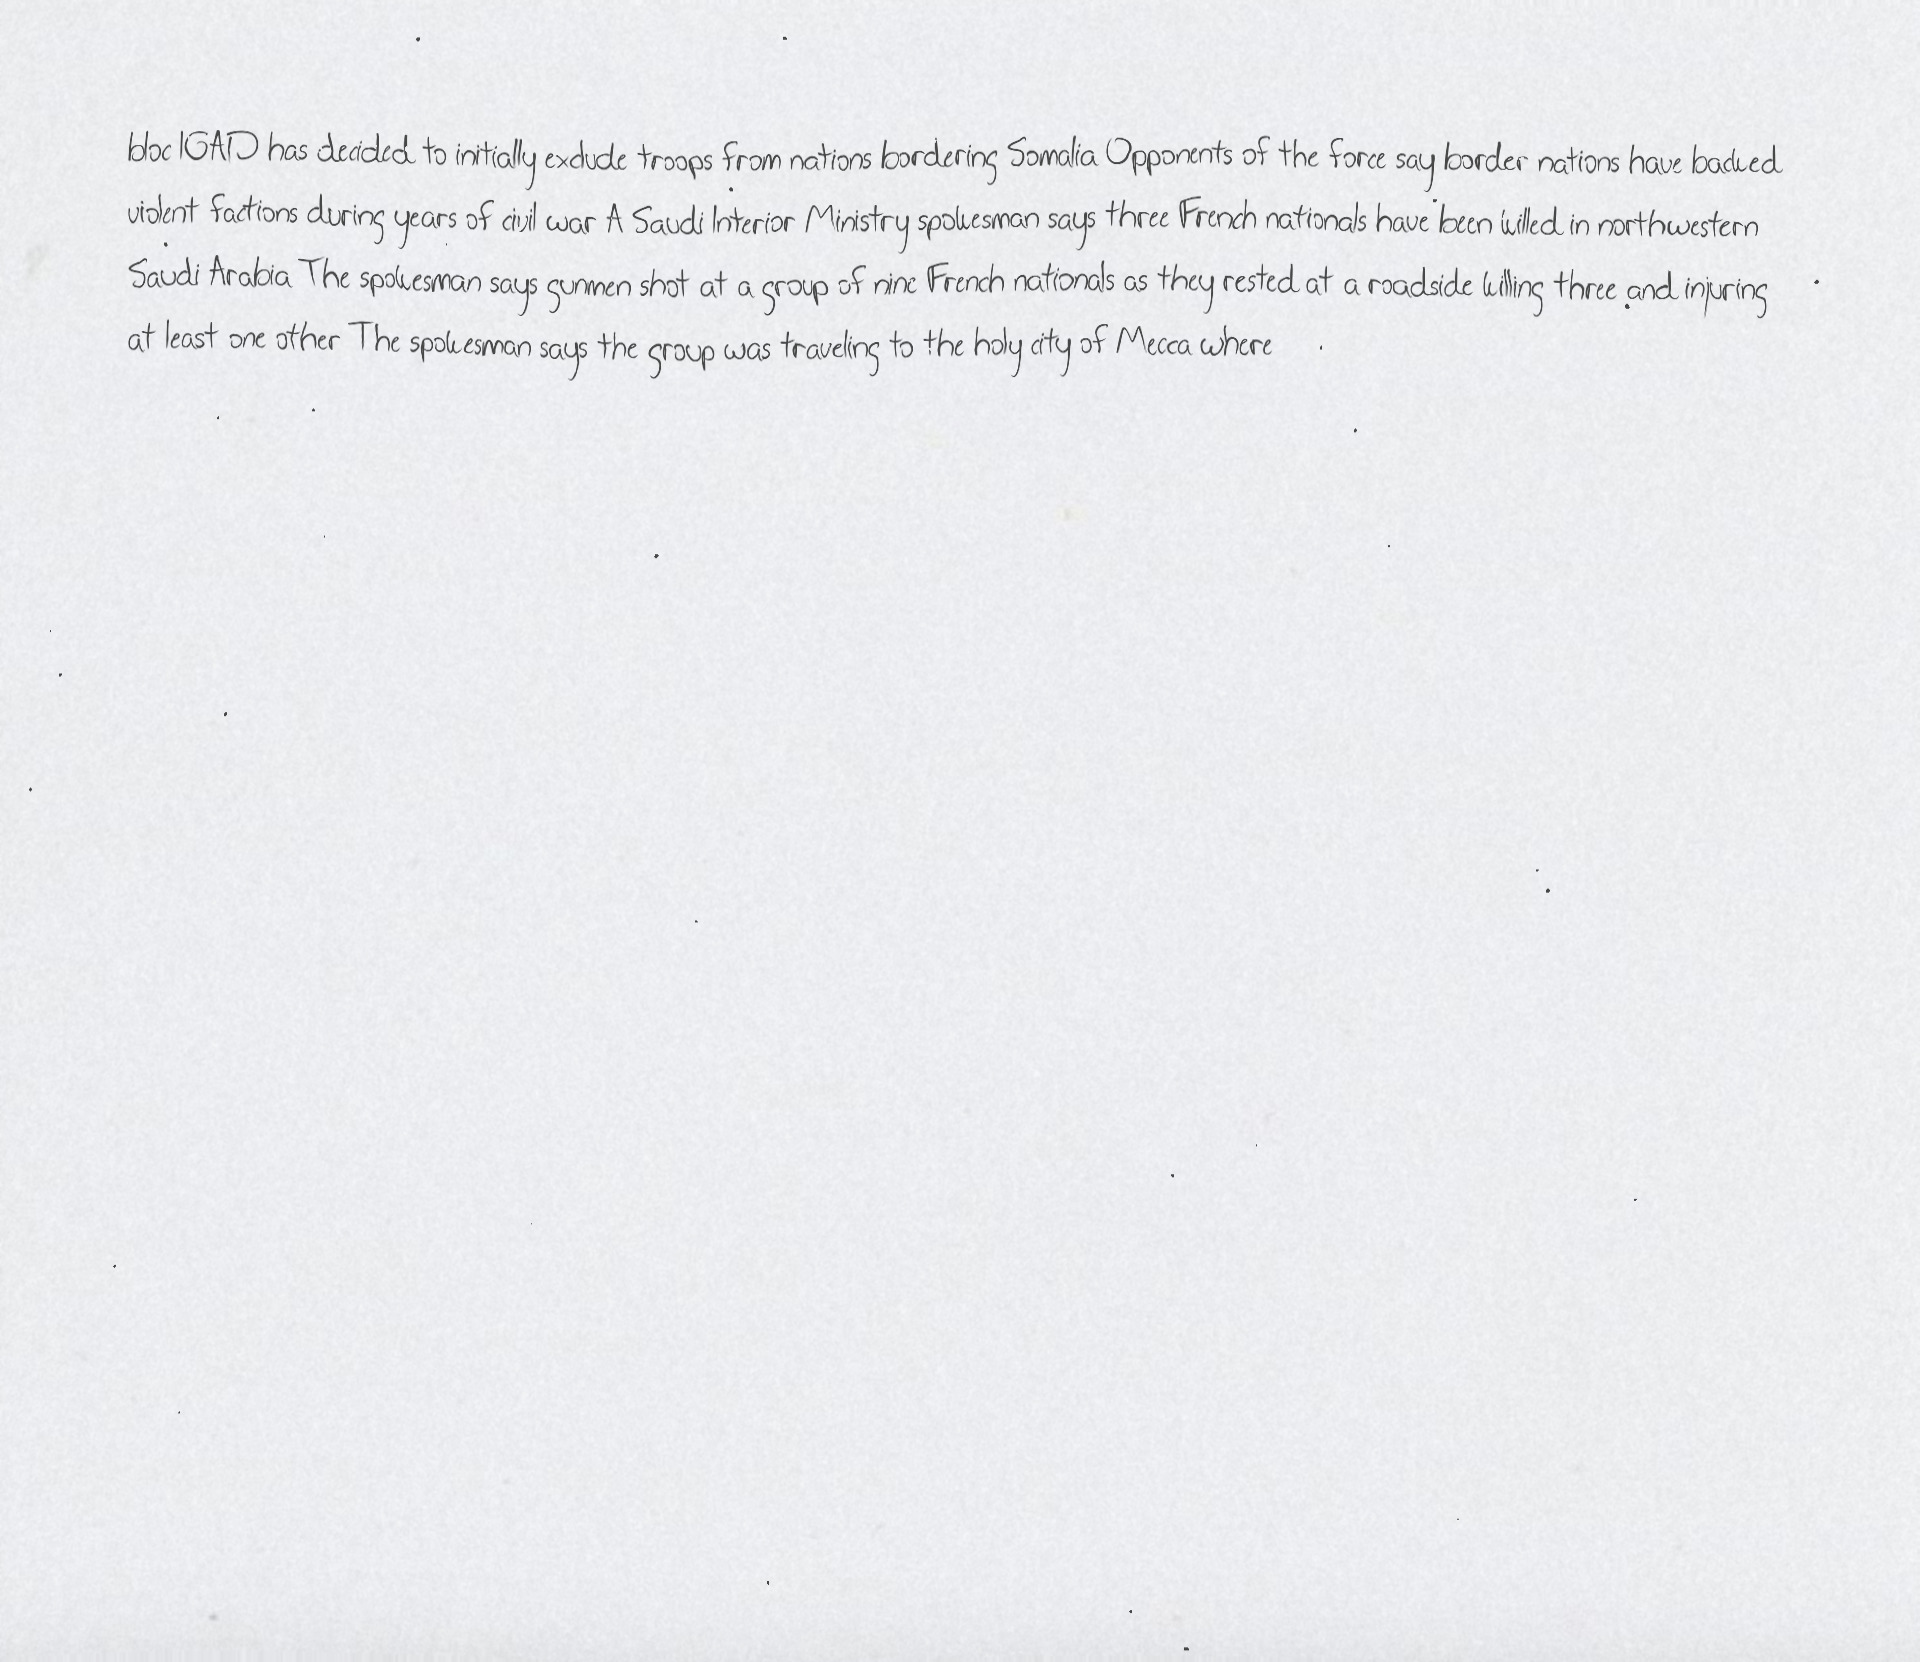 bloc IGAD has decided to initially exclude troops from nations bordering Somalia Opponents of the force say border nations have backed
violent factions during years of civil war A Saudi Interior Ministry spokesman says three French nationals have been killed in northwestern
Saudi Arabia The spokesman says gunmen shot at a group of nine French nationals as they rested at a roadside killing three and injuring
at least one other The spokesman says the group was traveling to the holy city of Mecca where